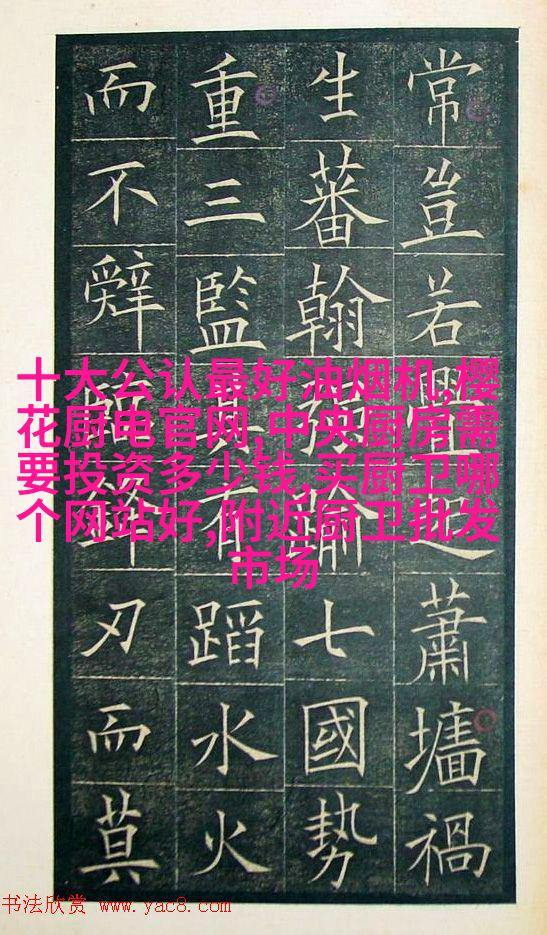 常豈若蕭墻禍
生蕃翰七國勢
重三監其有蹈水火
而不辤鋒刃而莫
十大公认最好油烟机,樱
花厨电官网,中央厨房需
要投资多少钱,买厨卫哪
个网站好,附近厨卫批发
市场
书法欣赏 www.yac8.com